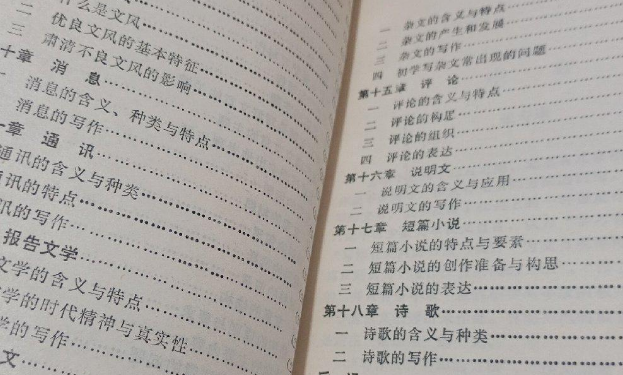 什么是文风
二 优良文风的基本特征
三 肃清不良文风的影响
十章 消 息
一 消息的含义、种类与特点
消息的写作
一章 通 讯
通讯的含义与种类
通讯的特点
讯的写作
报告文学
文学的含义与特点
学的时代精神与真实性
学的写作
文
一 杂文的含义与特点
二 杂文的产生和发展
三 杂文的写作
四 初学写杂文常出现的问题
第十五章 评 论
一 评论的含义与特点
二 评论的构思
三 评论的组织
四 评论的表达
第十六章 说明文
一 说明文的含义与应用
二 说明文的写作
第十七章 短篇小说
一 短篇小说的特点与要素
二 短篇小说的创作准备与构思
三 短篇小说的表达
第十八章 诗 歌
一 诗歌的含义与种类
二 诗歌的写作